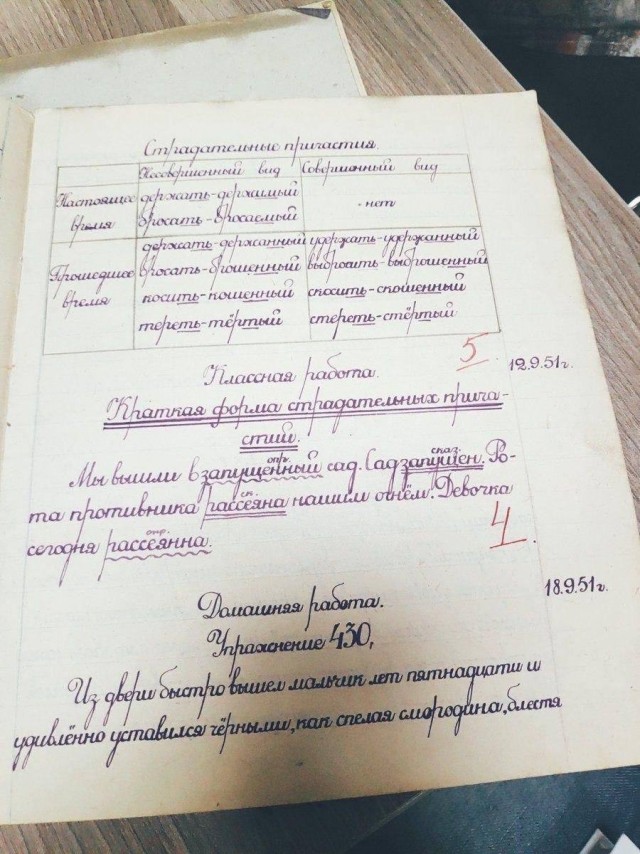 Страдательные причастия.
Несовершенный вид Совершенный вид
Настоящее держать-держимый
время бросать-бросаемый нет
держать-держанный удержать-удержанный
Прошедшее бросать-брошенный выбросить-выброшенный
время косить-кошенный скосить-скошенный
тереть-тёртый стереть-стёртый
5.
Классная работа. 12.9.51г.
Краткая форма страдательных прича-
стий.
опр. сказ.
Мы вышли в запущенный сад. Сад запущен. Ро-
ск.
та противника рассеяна нашим огнём. Девочка
опр.
сегодня рассеянна.
4.
18.9.51г.
Домашняя работа.
Упражнение 430,
Из двери быстро вышел мальчик лет пятнадцати и
удивлённо уставился чёрными, как спелая смородина, блестя